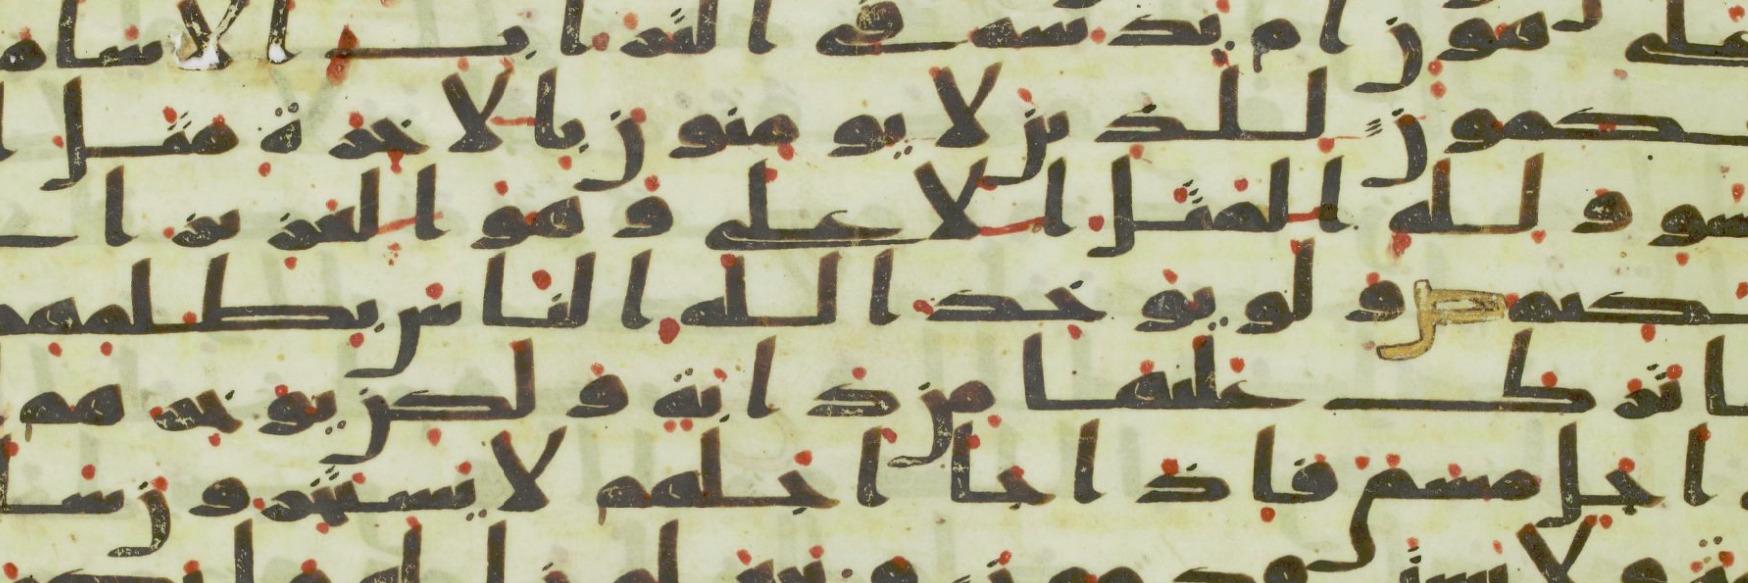 على هون ام يدسه في التراب الا سا ما
يحكمون للذين لا يومنون بالاخرة مثل ا
لسو ولله المثل الاعلى وهو العزيز ا
لحكيم ولو يوخذ الله الناس بظلمهم
ما ترك عليها من دابة ولكن يوخرهم
اجل مسمى فاذا جا اجلهم لا يستخرون سا